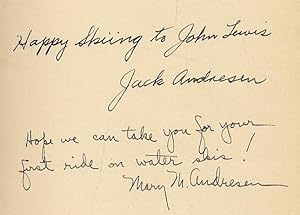 Happy Skiing to John Lewis
Jack Andresen
Hope we can take you for your
first ride on water skis!
Mary M. Andresen